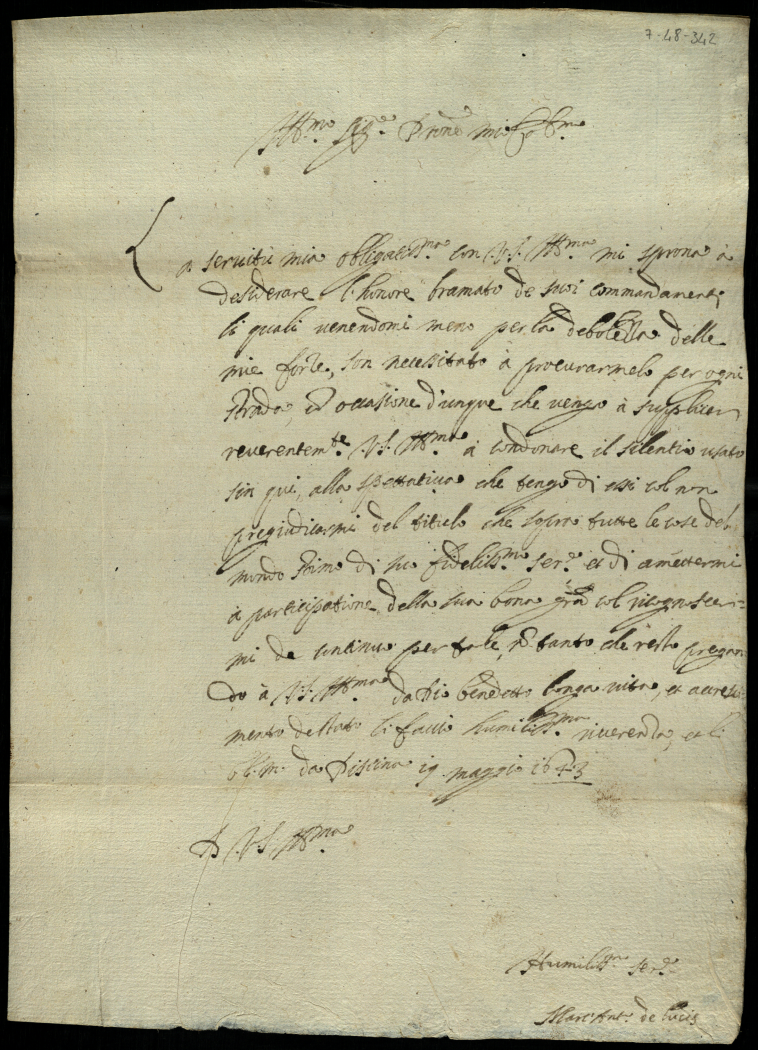 7-48-342
Ill.mo Sig.re P.rone mio Col.mo
La servitù mia obligatis.ma con V.S. Ill.ma mi sprona à
desiderare l'honore bramato de suoi commandamenti
li quali venendomi meno per la debolezza delle
mie forze, son necessitato à procurarmelo per ogni
strada, et occasione dunque che vengo à supplicar
reverentem.te V.S. Ill.ma à condonare il silentio usato
sin qui, alla spettativa che tengo di essi col non
pregiudicarmi del titulo che sopra tutte le cose del
mondo stimo di suo fidelis.mo ser.re et di amettermi
à participatione della sua bona gra col ricognoscer=
mi de continuo per tale, tanto che resto pregan
do à V.S. Ill.ma da Dio benedetto longa vita, et accresci
mento de stato li faccio humilis.ma riverenza, et li
da Piscina 19 maggio 1643
D V.S. Ill.ma
Humilis.mo ser.re
Marc'Ant.o de Lucis